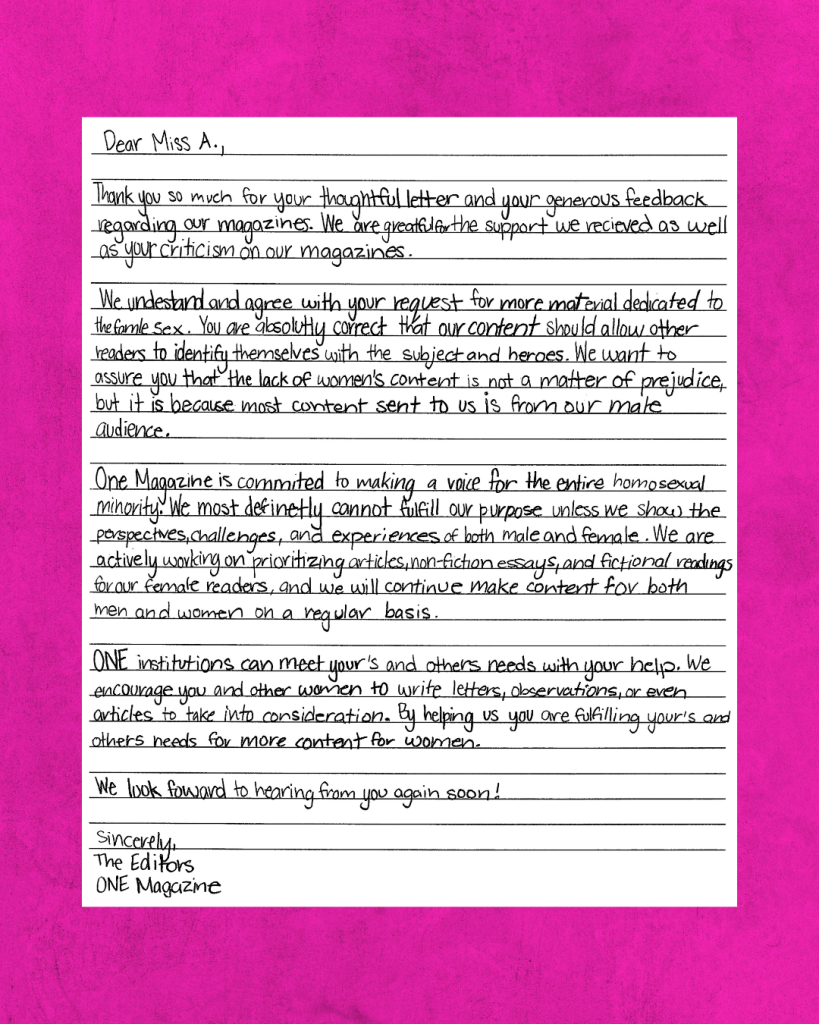 Dear Miss A.,
Thank you so much for your thoughtful letter and your generous feedback
regarding our magazines. We are greatful for the support we recieved as well
as your criticism on our magazines.
We undestand and agree with your request for more material dedicated to
the famle sex. You are absolutly correct that our content should allow other
readers to identify themselves with the subject and heroes. We want to
assure you that the lack of women's content is not a matter of prejudice,
but it is because most content sent to us is from our male
audience.
One Magazine is commited to making a voice for the entire homosexual
minority. We most definetly cannot fulfill our purpose unless we show the
perspectives, challenges, and experiences of both male and female. We are
actively working on prioritizing articles, non-fiction essays, and fictional readings
for our female readers, and we will continue make content for both
men and women on a regular basis.
ONE institutions can meet your's and others needs with your help. We
encourage you and other women to write letters, observations, or even
articles to take into consideration. By helping us you are fulfilling your's and
others needs for more content for women.
We look foward to hearing from you again soon!
Sincerely,
The Editors
ONE Magazine